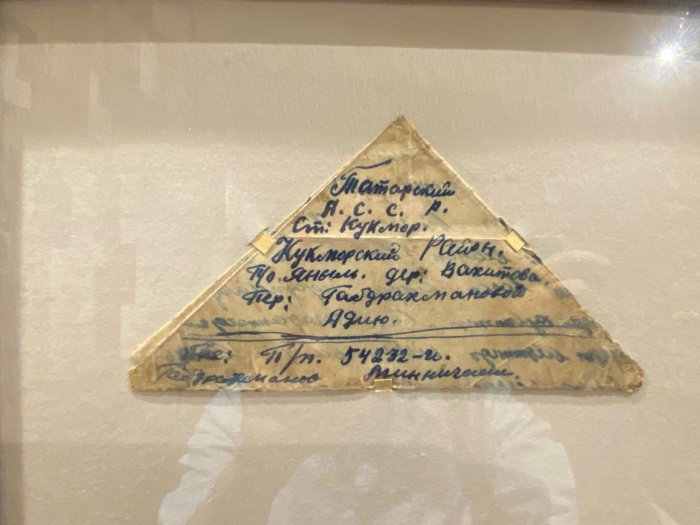 Татарский
А. С. С. Р.
Ст: Кукмор.
Кукморский Район.
П/о. Яныль. дер: Вахитова.
Пер: Габдрахмановой
Адию.
П/п. 54232-и.
Габдрахманов Минничали.